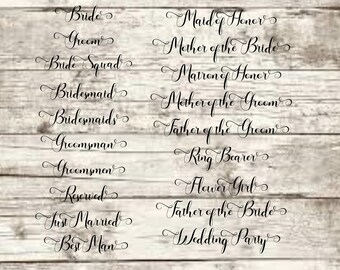 Bride
Groom
Bride Squad
Bridesmaid
Bridesmaids
Groomsman
Groomsmen
Reserved
Just Married
Best Man
Maid of Honor
Mother of the Bride
Matron of Honor
Mother of the Groom
Father of the Groom
Ring Bearer
Flower Girl
Father of the Bride
Wedding Party